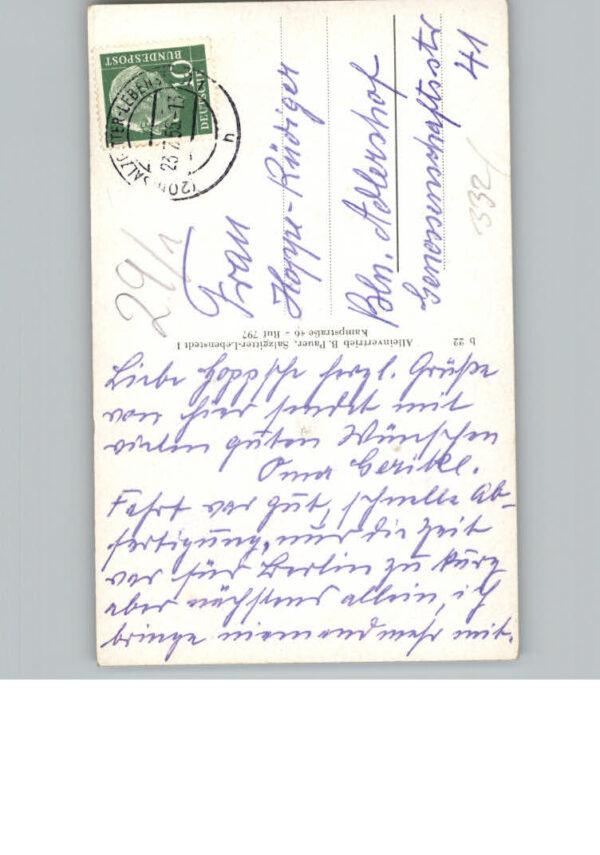 DEUTSCHE
BUNDESPOST
10
SALZGITTER-LEBENS
(20
23
h
29/1
332/
Frau
Hoppe-Rüdiger
Bln. Adlershof
Genossenschaftsstr
41
b 22
Alleinvertrieb B. Pauer, Salzgitter-Lebenstedt 1
Kampstraße 46 - Ruf 797
Liebe Hoppsche herzl. Grüße
von hier sendet mit
vielen guten Wünschen
Oma Gericke.
Fahrt war gut, schnelle Ab-
fertigung, nur die Zeit
war für Berlin zu kurz
aber nächstens allein, ich
bringe niemand mehr mit.